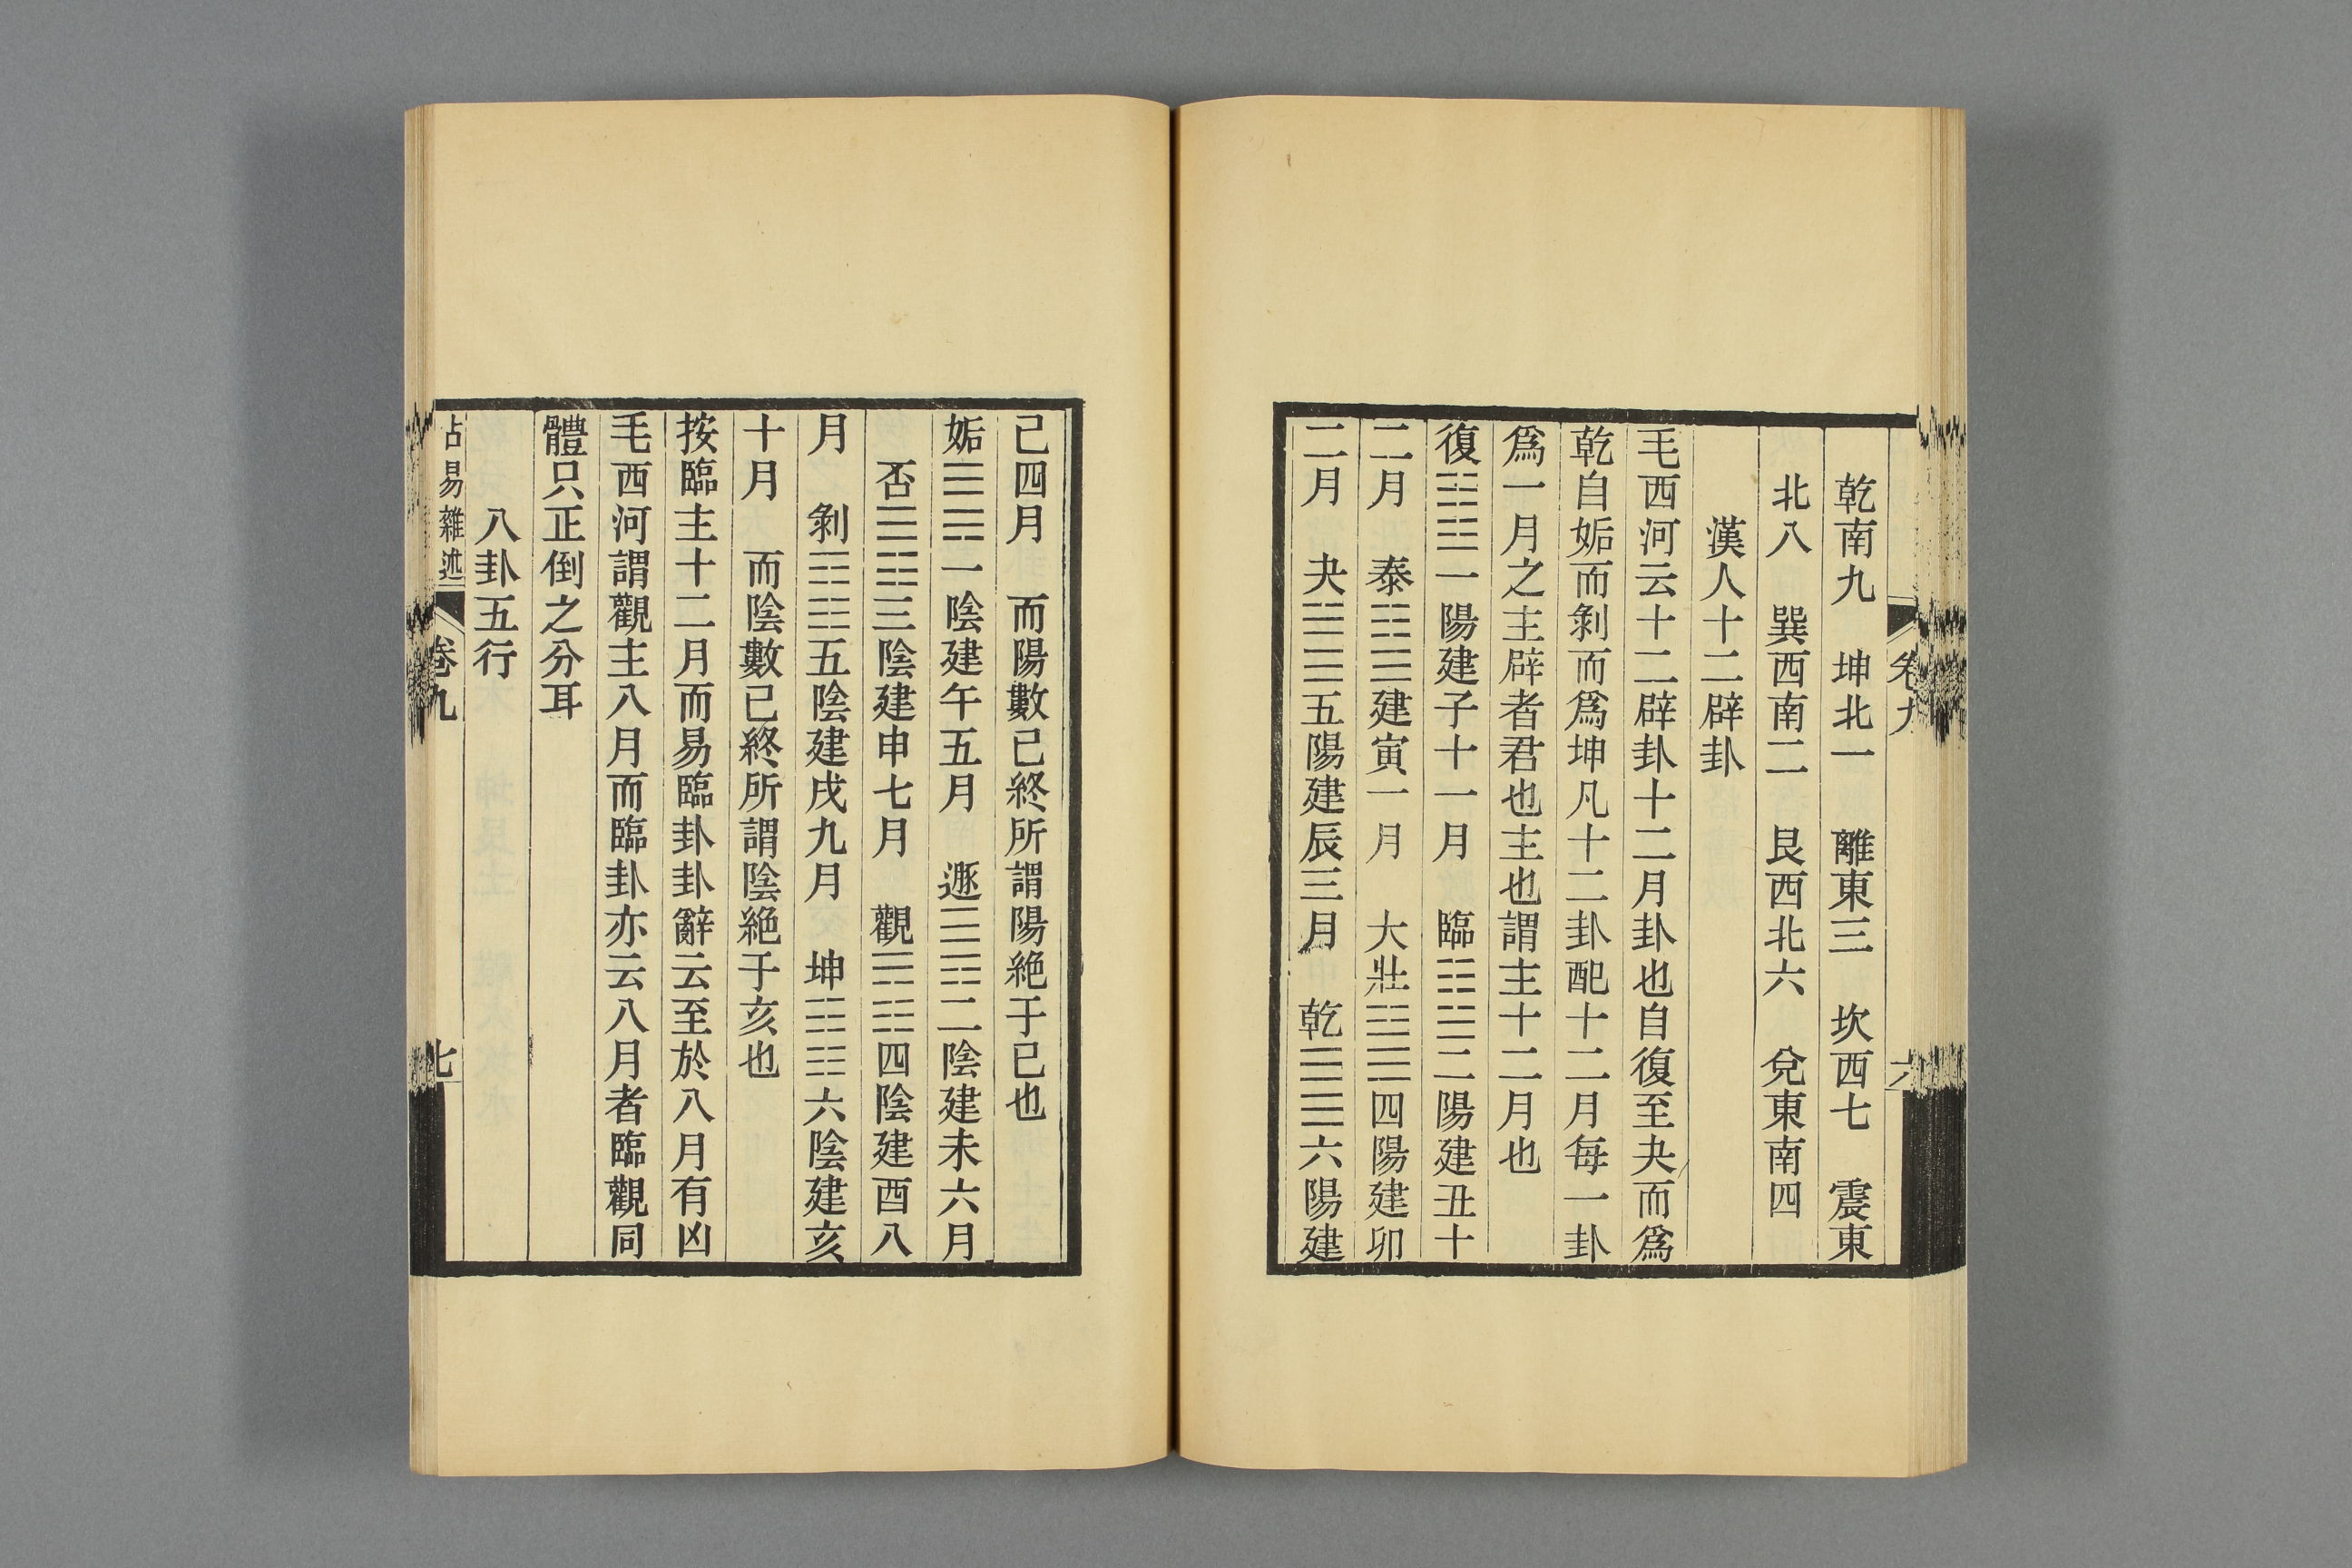 卷九　六
乾南九　坤北一　離東三　坎西七　震東
北八　巽西南二　艮西北六　兌東南四
漢人十二辟卦
毛西河云十二辟卦十二月卦也自復至夬而爲
乾自姤而剝而爲坤凡十二卦配十二月每一卦
爲一月之主辟者君也主也謂主十二月也
復䷗一陽建子十一月　臨䷒二陽建丑十
二月　泰䷊建寅一月　大壯䷡四陽建卯
二月　夬䷪五陽建辰三月　乾䷀六陽建
己四月　而陽數已終所謂陽絕于已也
姤䷫一陰建午五月　遯䷠二陰建未六月
否䷋三陰建申七月　觀䷓四陰建酉八
月　剝䷖五陰建戌九月　坤䷁六陰建亥
十月　而陰數已終所謂陰絕于亥也
按臨主十二月而易臨卦卦辭云至於八月有凶
毛西河謂觀主八月而臨卦亦云八月者臨觀同
體只正倒之分耳
八卦五行
占易雜述　卷九　七